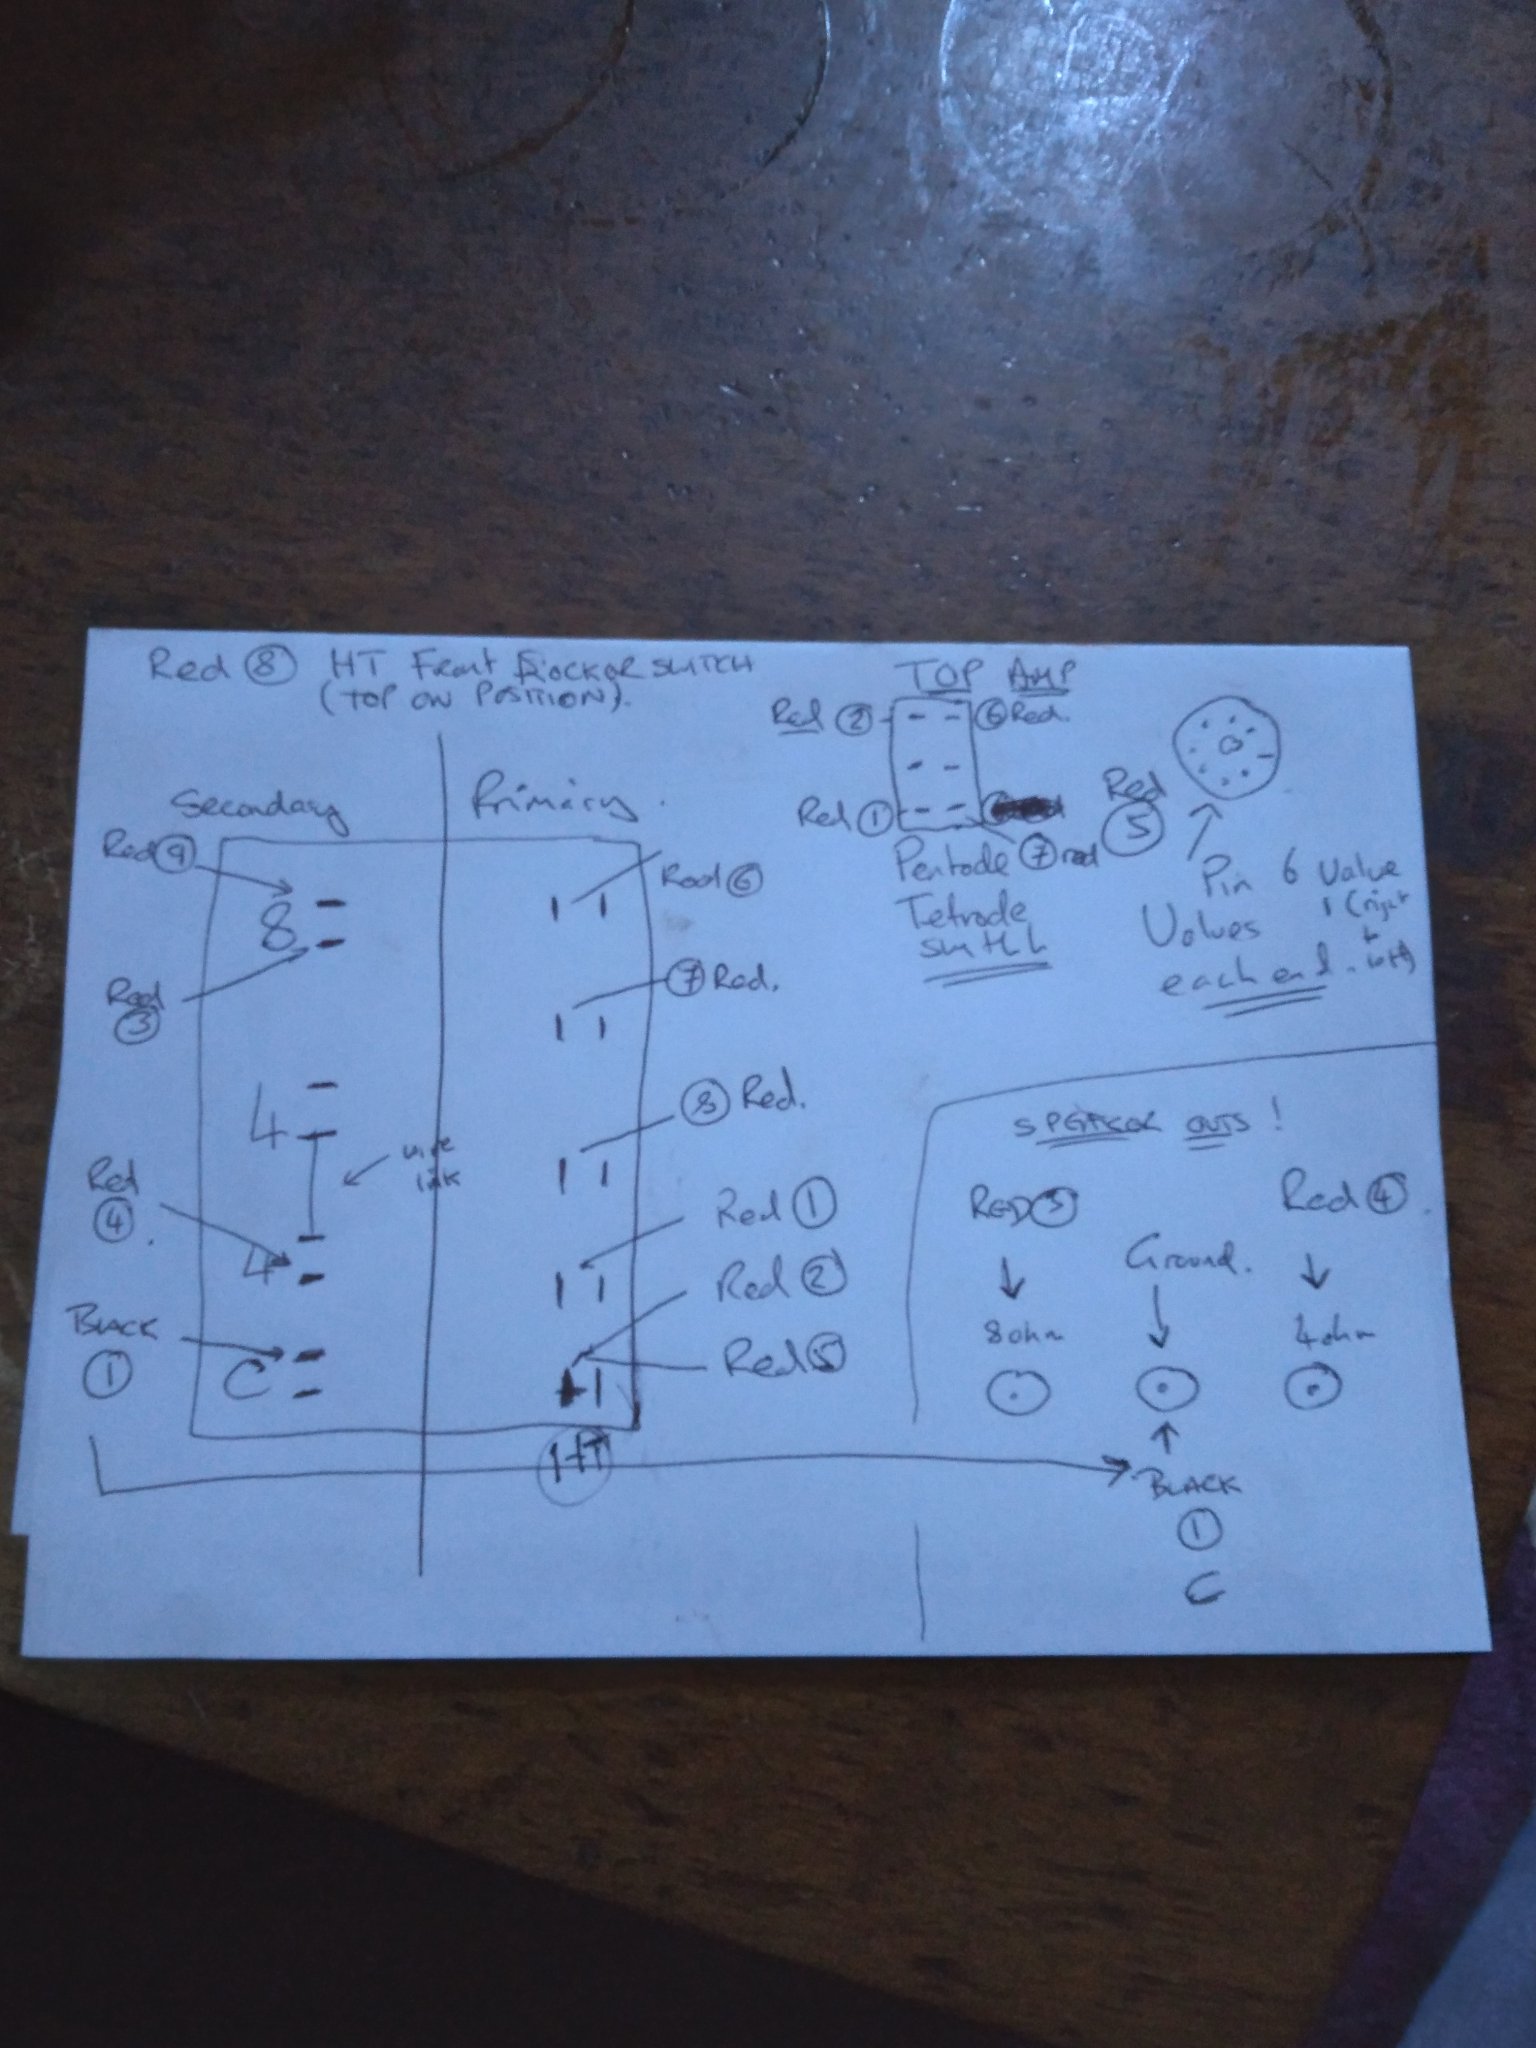 Red ⑧ HT Front Rocker switch
(TOP ON POSITION).
TOP AMP
Red ② ⑥ Red.
Red ①
⑦ red
Pentode
Tetrode
switch
Red
⑤
Pin 6 Valve
Valves 1 (right
each end. left)
Secondary Primary.
Red ⑨
8
Red
③
4
wire
link
Red
④.
4
BLACK
①
C
Red ⑥
⑦ Red.
⑧ Red.
Red ①
Red ②
Red ⑤
HT
SPEAKER OUTS!
RED ③
Ground.
Red ④.
8 ohm
4 ohm
BLACK
①
C